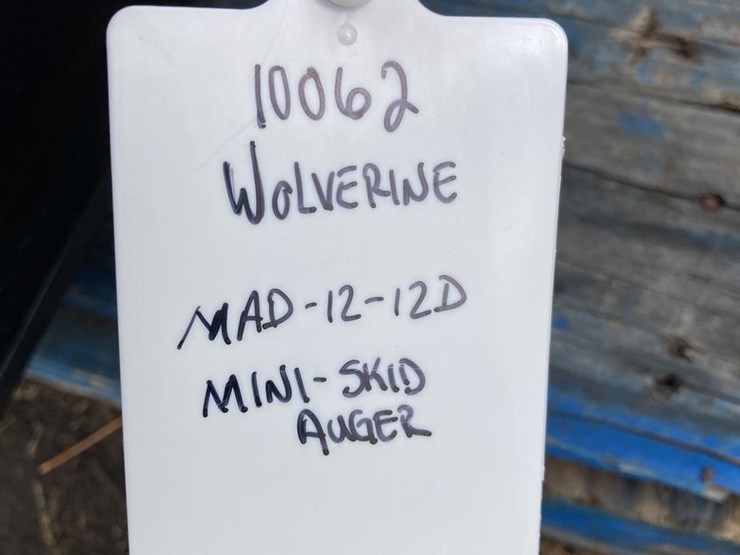 10062
WOLVERINE
MAD-12-12D
MINI-SKID
AUGER